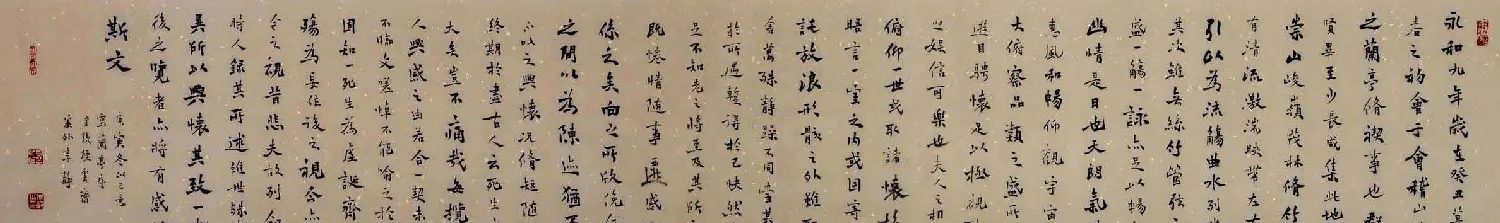 永和九年歲在癸丑
春之初會于會稽山
之蘭亭脩禊事也羣
賢畢至少長咸集此地
崇山峻嶺茂林脩竹
有清流激湍映帶左
引以為流觴曲水列坐
其次雖無絲竹管弦之
盛一觴一詠亦足以暢
幽情是日也天朗氣
惠風和暢仰觀宇宙
大俯察品類之盛所
遊目騁懷足以極視
之娛信可樂也夫人之相
俯仰一世或取諸懷
晤言一室之內或因寄
託放浪形骸之外雖
舍萬殊靜躁不同當其
於所遇暫得於己快然
足不知老之將至及其所
既惓情隨事遷感
係之矣向之所欣俛仰
之間以為陳迹猶不
以之興懷況脩短隨
終期於盡古人云死生
大矣豈不痛哉每攬
人興感之由若合一契未
不臨文嗟悼不能喻之於
固知一死生為虛誕齊
殤為妄作後之視今亦
今之視昔悲夫故列敘
時人錄其所述雖世殊
異所以興懷其致一
後之覽者亦將有感
斯文